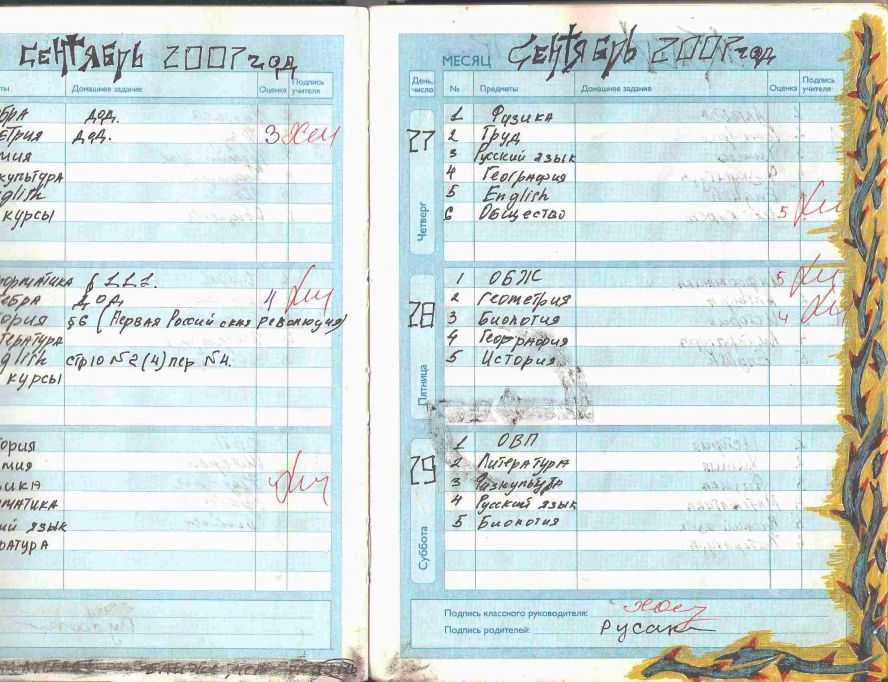 Сентябрь 2007 год
ты Домашнее задание Оценка Подпись учителя
бра дод.
етрия дод. 3
мия
культура
glish
курсы
форматика § 1.1.1.
ебра дод 4
ория §6 (Первая Российская революция)
тература
glish стр10 №2(4)пер №4.
курсы
ория
мия
ика
матика
ий язык
ратура
МЕСЯЦ Сентябрь 2007 год
День, число № Предметы Домашнее задание Оценка Подпись учителя
27 Четверг
1 Физика
2 Труд
3 Русский язык
4 География
5 English
6 Общество 5
28 Пятница
1 ОБЖ 5
2 Геометрия
3 Биология 4
4 География
5 История
29 Суббота
1 ОВП
2 Литература
3 Физкультура
4 Русский язык
5 Биология
Подпись классного руководителя:
Подпись родителей: Русак